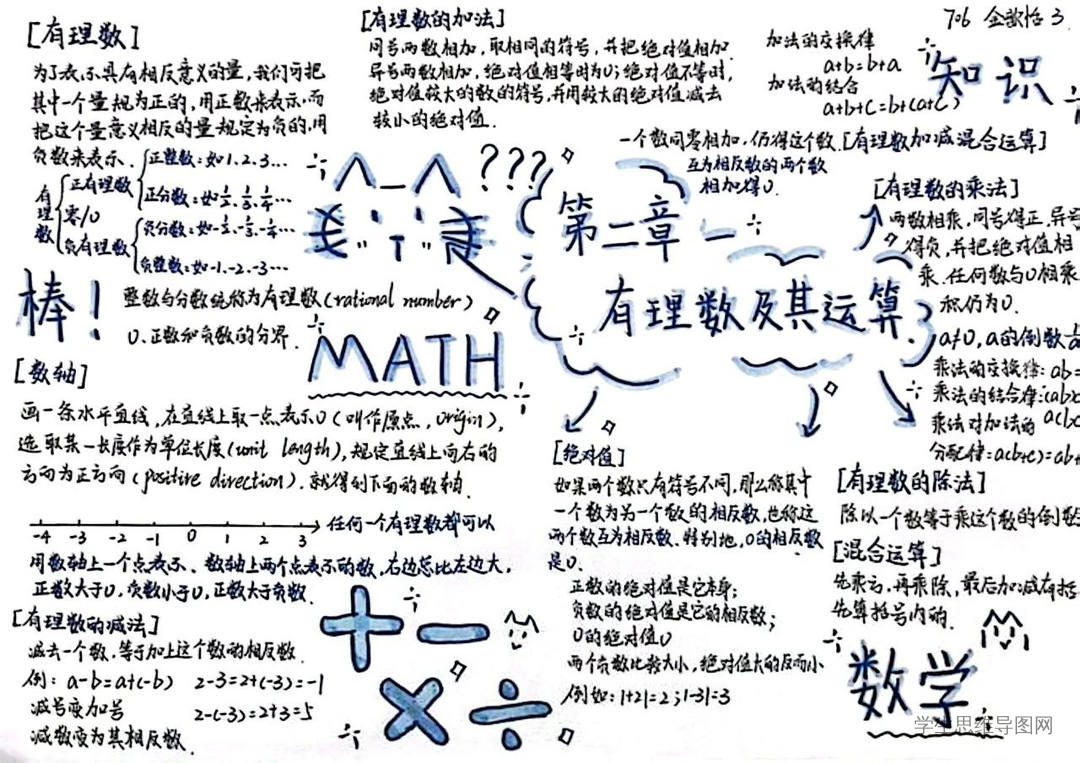 [有理数]
为了表示具有相反意义的量，我们可把
其中一个量规为正的，用正数来表示，而
把这个量意义相反的量规定为负的，用
负数来表示．
有理数
正有理数
正整数：如1、2、3…
正分数：如½、⅓、¼…
零/0
负有理数
负分数：如-½、-⅓、-¼…
负整数：如-1、-2、-3…
棒！
整数与分数统称为有理数（rational number）
0、正数和负数的分界．
[有理数的加法]
同号两数相加，取相同的符号，并把绝对值相加
异号两数相加，绝对值相等时为0；绝对值不等时，
绝对值较大的数的符号，并用较大的绝对值减去
较小的绝对值．
706 金歆怡 3
加法的交换律
a+b=b+a
加法的结合
a+b+c=b+(a+c)
知识
一个数同零相加，仍得这个数．
互为相反数的两个数
相加得0．
[有理数加减混合运算]
???
第二章
有理数及其运算
MATH
[有理数的乘法]
两数相乘，同号得正，异号
得负，并把绝对值相
乘．任何数与0相乘
积仍为0．
a≠0，a的倒数
乘法的交换律：ab=
乘法的结合律：(ab)c
乘法对加法的 a(bc
分配律：a(b+c)=ab+
[数轴]
画一条水平直线，在直线上取一点表示0（叫作原点，origin），
选取某一长度作为单位长度（unit length），规定直线上向右的
方向为正方向（positive direction）．就得到下面的数轴．
-4 -3 -2 -1 0 1 2 3
任何一个有理数都可以
用数轴上一个点表示、数轴上两个点表示的数，右边总比左边大，
正数大于0，负数小于0，正数大于负数．
[有理数的减法]
减去一个数，等于加上这个数的相反数．
例：a-b=a+(-b) 2-3=2+(-3)=-1
减号变加号 2-(-3)=2+3=5
减数变为其相反数．
+ − × ÷
[绝对值]
如果两个数只有符号不同，那么称其中
一个数为另一个数的相反数，也称这
两个数互为相反数．特别地，0的相反数
是0．
正数的绝对值是它本身；
负数的绝对值是它的相反数；
0的绝对值0
两个负数比较大小，绝对值大的反而小
例如：|+2|=2；|-3|=3
[有理数的除法]
除以一个数等于乘这个数的倒数
[混合运算]
先乘方，再乘除，最后加减有括
先算括号内的．
数学
学生思维导图网